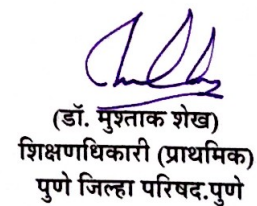 (डॉ. मुश्ताक शेख)
शिक्षणाधिकारी (प्राथमिक)
पुणे जिल्हा परिषद.पुणे